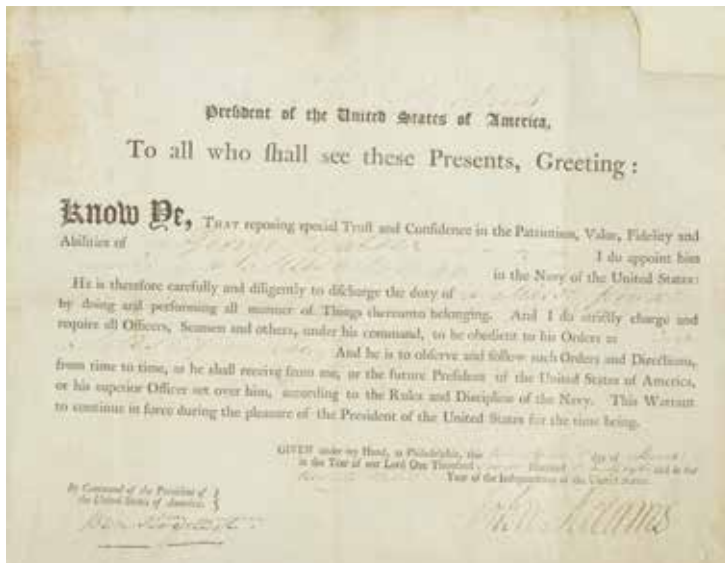 President of the United States of America,
To all who ſhall see these Presents, Greeting :
Know Ye, THAT reposing special Truſt and Confidence in the Patriotism, Valor, Fidelity and
Abilities of George I do appoint him
in the Navy of the United States:
He is therefore carefully and diligently to diſcharge the duty of
by doing and performing all manner of Things thereunto belonging. And I do ſtrictly charge and
require all Officers, Seamen and others, under his command, to be obedient to his Orders as
And he is to obſerve and follow ſuch Orders and Directions,
from time to time, as he ſhall receive from me, or the future Preſident of the United States of America,
or his ſuperior Officer set over him, according to the Rules and Diſcipline of the Navy. This Warrant
to continue in force during the pleasure of the Preſident of the United States for the time being.
GIVEN under my Hand, at Philadelphia, this day of
in the Year of our Lord One Thouſand Hundred and in the
Year of the Independence of the United States.
By Command of the Preſident of
the United States of America.
Ben Stoddert
John Adams